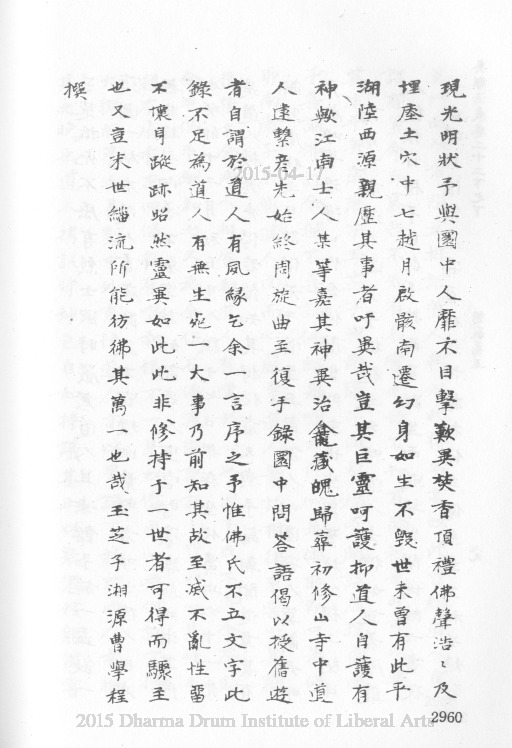 現光明狀予與圜中人靡不目擊歎異焚香頂禮佛聲浩〻及
埋塵土穴中七越月啟骸南遷幻身如生不毀世未曾有此平
湖陸西源親歷其事者吁異哉豈其巨靈呵護抑道人自護有
神歟江南士人某等嘉其神異治龕藏魄歸葬初修山寺中道
人達繫彥先始終周旋曲至復手錄圜中問答語偈以授舊遊
者自謂於道人有夙緣乞余一言序之予惟佛氏不立文字此
錄不足為道人有無生死一大事乃前知其故至滅不亂性留
不壞身蹤跡昭然靈異如此此非修持于一世者可得而驟至
也又豈末世緇流所能彷彿其萬一也哉玉芝子湘源曹學程
撰
2960
2015-04-17
2015 Dharma Drum Institute of Liberal Arts